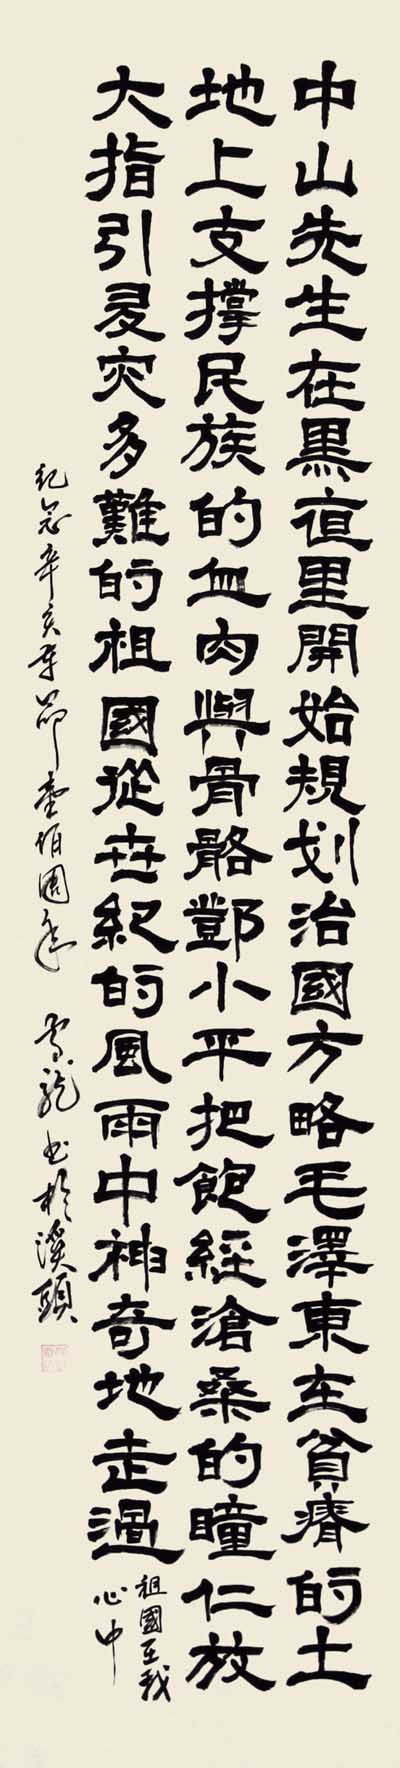 中山先生在黑夜里開始規划治國方略毛澤東在貧瘠的土
地上支撐民族的血肉與骨骼鄧小平把飽經滄桑的瞳仁放
大指引夛灾多難的祖國從世紀的風雨中神奇地走過
祖國在我
心中
紀念辛亥革命壹佰周年 龍书於溪頭